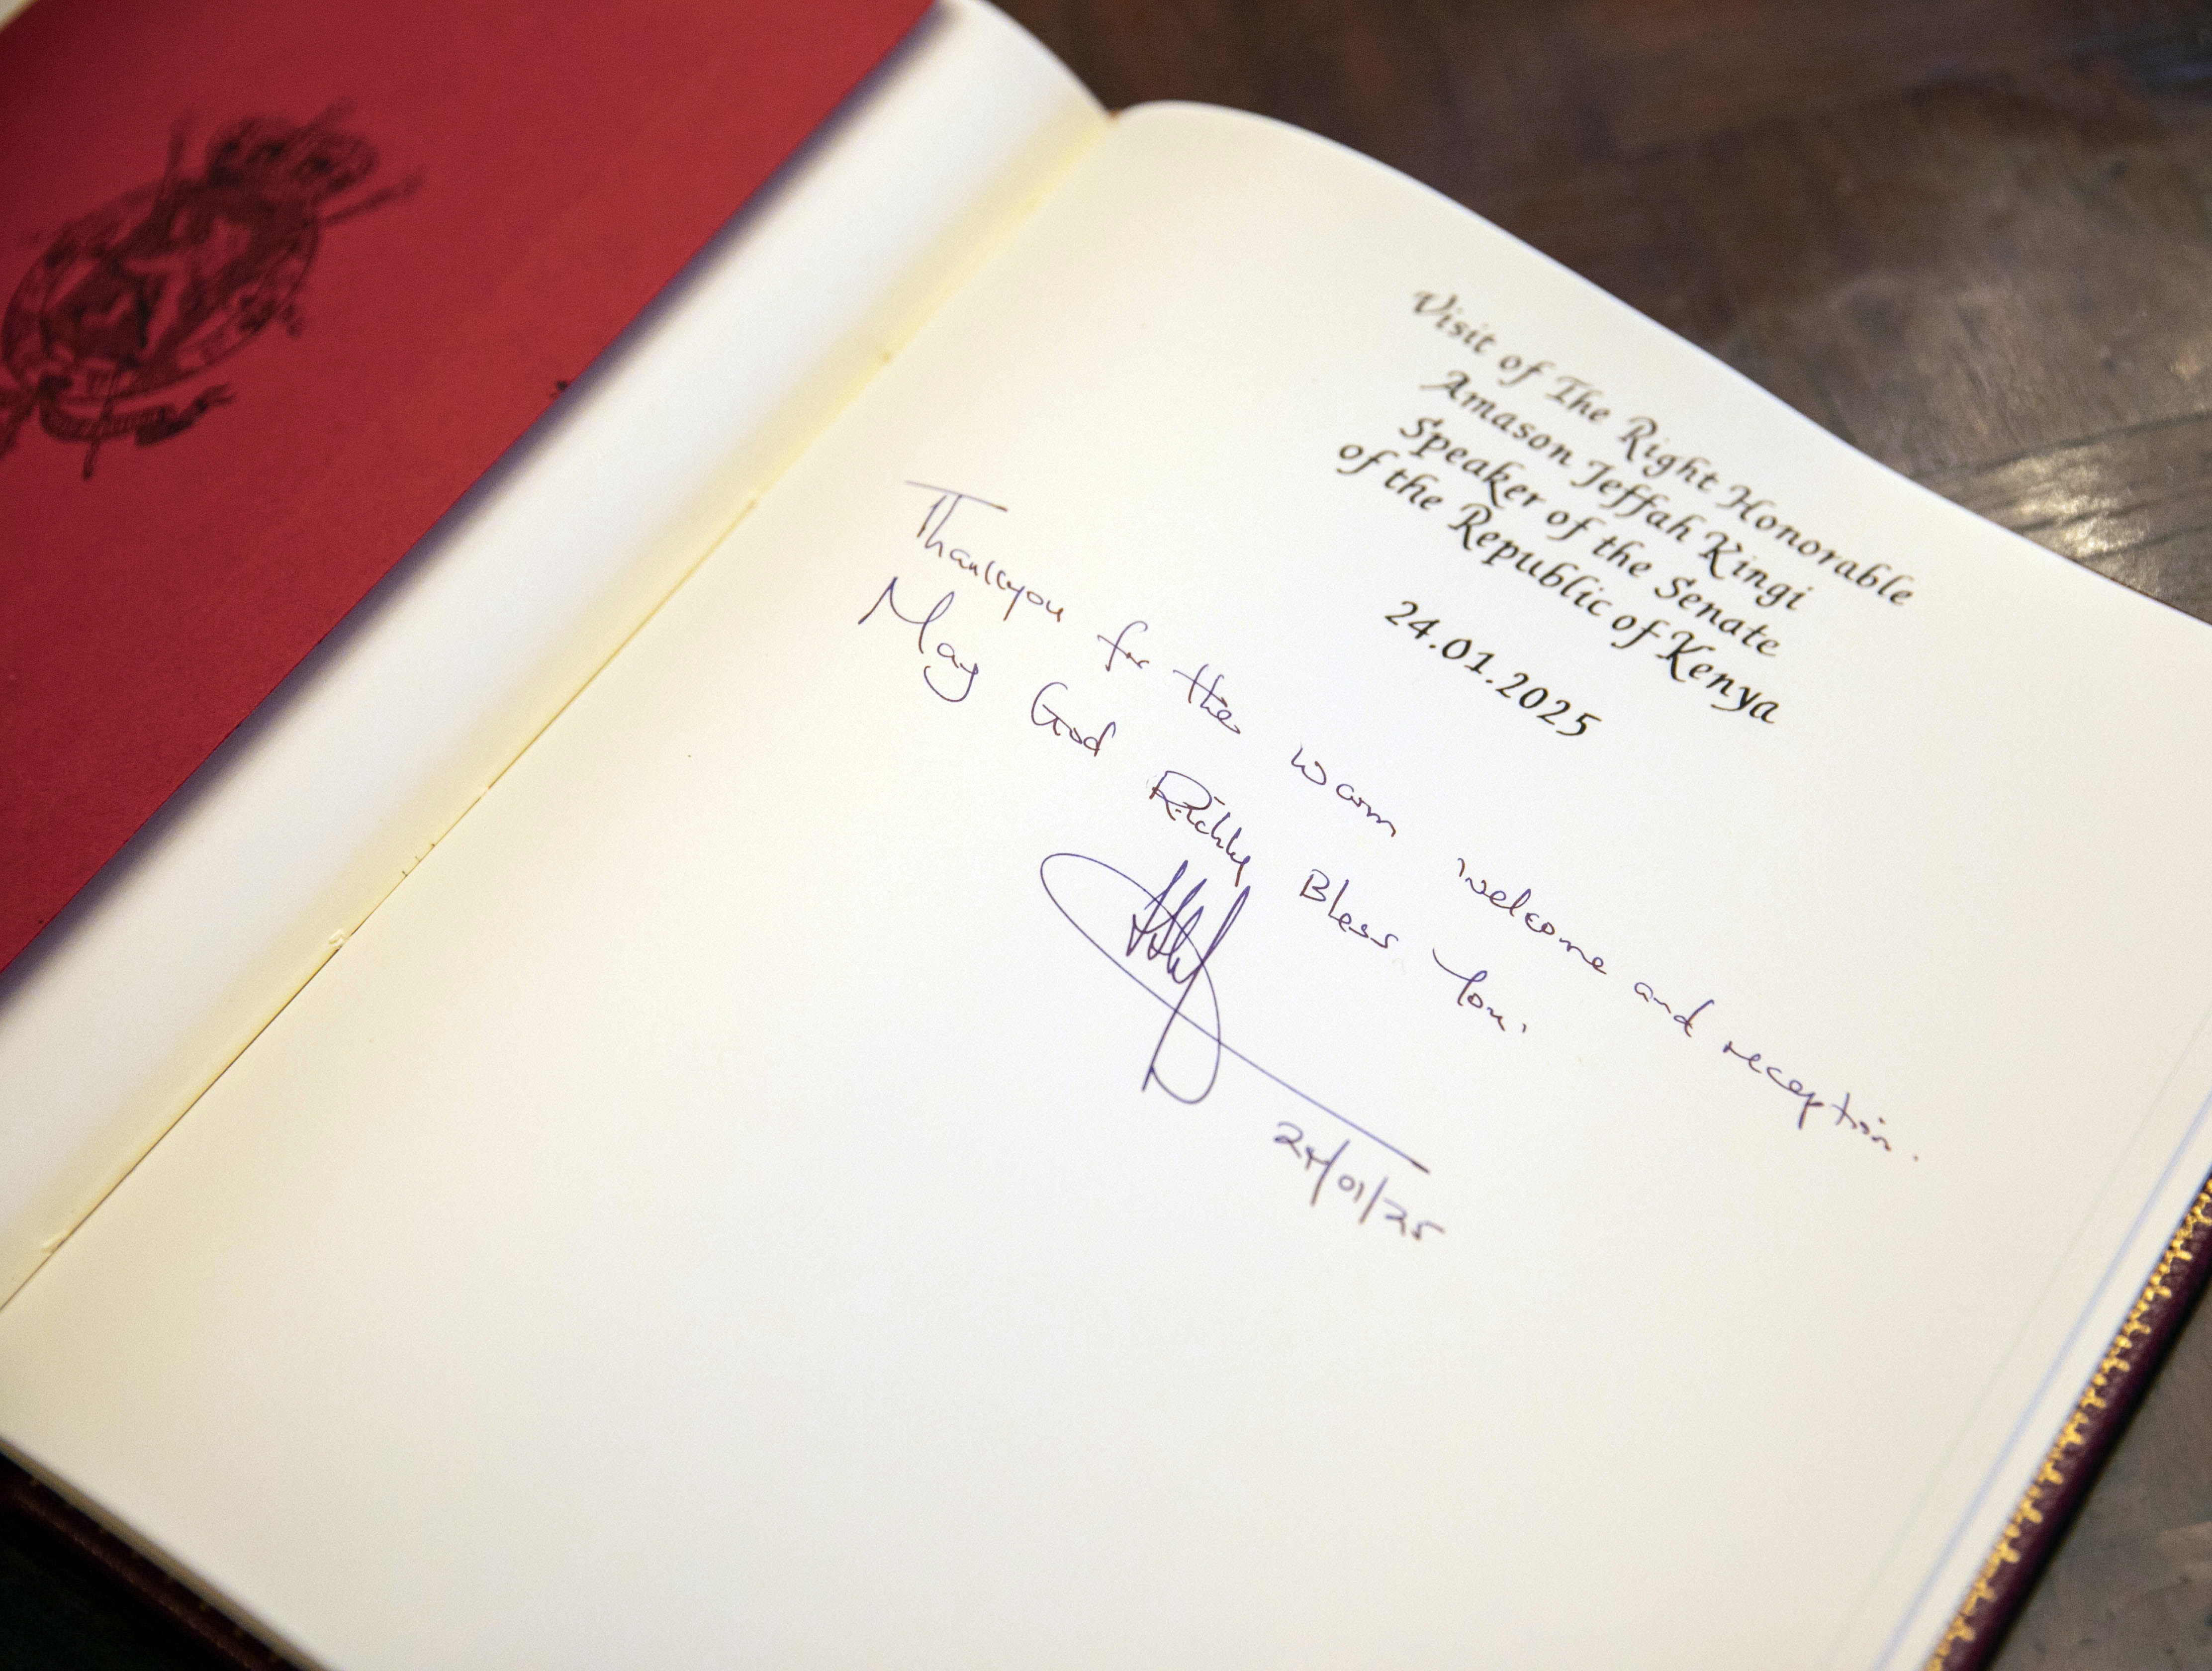 Visit of The Right Honorable
Amason Jeffah Kingi
Speaker of the Senate
of the Republic of Kenya
24.01.2025
Thankyou for the warm welcome and reception.
May God Richly Bless You.
24/01/25